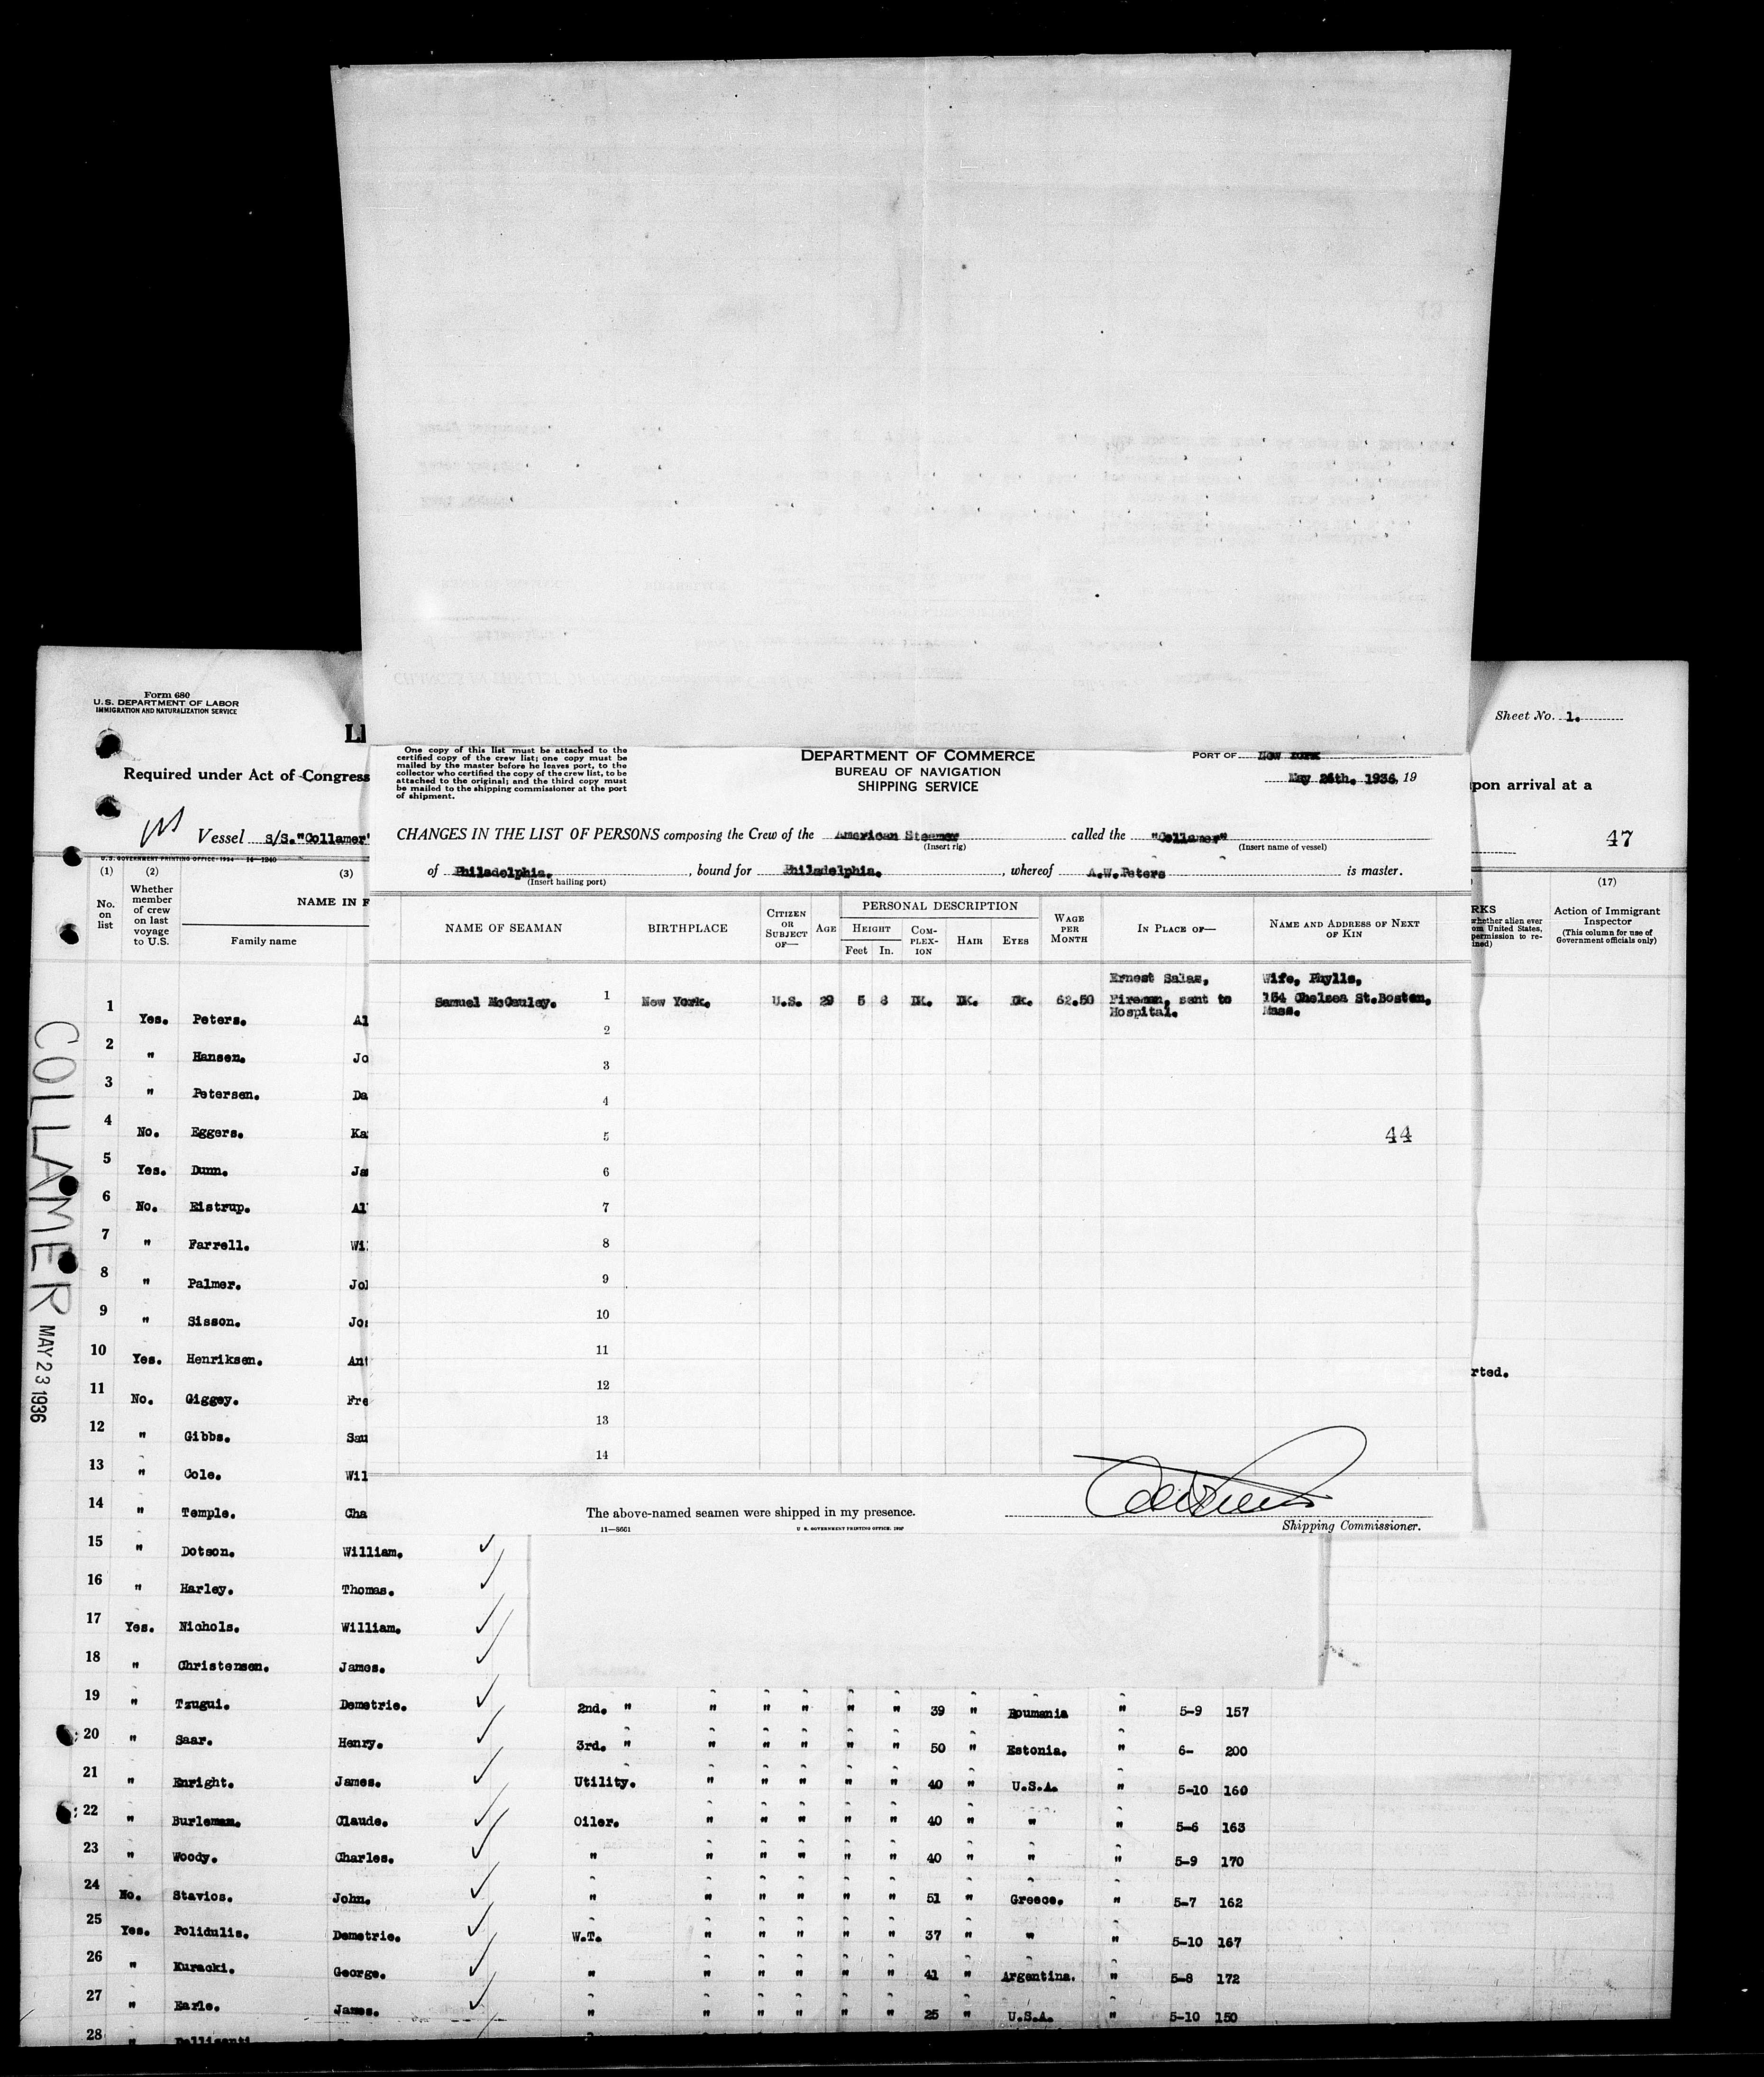 Form 680
U.S. DEPARTMENT OF LABOR
IMMIGRATION AND NATURALIZATION SERVICE
LI
Required under Act of Congress
Vessel S/S."Collamer"
U.S. GOVERNMENT PRINTING OFFICE: 1934 14—1240
Sheet No. 1.
upon arrival at a
47
(1) (2) (3)
No. on list
Whether member of crew on last voyage to U.S.
NAME IN F
Family name
RKS
whether alien ever
om United States,
permission to re-
ined)
(17)
Action of Immigrant Inspector
(This column for use of Government officials only)
One copy of this list must be attached to the
certified copy of the crew list; one copy must be
mailed by the master before he leaves port, to the
collector who certified the copy of the crew list, to be
attached to the original; and the third copy must
be mailed to the shipping commissioner at the port
of shipment.
DEPARTMENT OF COMMERCE
BUREAU OF NAVIGATION
SHIPPING SERVICE
PORT OF New York
May 26th. 1936, 19
CHANGES IN THE LIST OF PERSONS composing the Crew of the American Steamer called the "Collamer"
(Insert rig) (Insert name of vessel)
of Philadelphia. , bound for Philadelphia. , whereof A.W.Peters is master.
(Insert hailing port)
NAME OF SEAMAN BIRTHPLACE CITIZEN OR SUBJECT OF— AGE PERSONAL DESCRIPTION WAGE PER MONTH IN PLACE OF— NAME AND ADDRESS OF NEXT OF KIN
HEIGHT COM-PLEX-ION HAIR EYES
Feet In.
Samuel McCauley. 1 New York. U.S. 29 5 8 DK. DK. DK. 62.50 Ernest Salas, Fireman, sent to Hospital. Wife, Phylls, 154 Chelsea St.Boston, Mass.
2
3
4
5 44
6
7
8
9
10
11
12
13
14
The above-named seamen were shipped in my presence.
11—8661 U. S. GOVERNMENT PRINTING OFFICE: 1927
Shipping Commissioner.
COLLAMER
MAY 23 1936
1 Yes. Peters. Al
2 " Hansen. Jo
3 " Petersen. Da
4 No. Eggers. Ka
5 Yes. Dunn. Ja
6 No. Eistrup. Al
7 " Farrell. Wi
8 " Palmer. Jo
9 " Sisson. Jo
10 Yes. Henriksen. Ant
rted.
11 No. Giggey. Fre
12 " Gibbs. Sau
13 " Cole. Wil
14 " Temple. Cha
15 " Dotson. William.
16 " Harley. Thomas.
17 Yes. Nichols. William.
18 " Christensen. James.
19 " Tzugui. Demetrie. 2nd. " " " " " " 39 " Roumania " 5-9 157
20 " Saar. Henry. 3rd. " " " " " " 50 " Estonia. " 6- 200
21 " Enright. James. Utility. " " " " " 40 " U.S.A. " 5-10 160
22 " Burleman. Claude. Oiler. " " " " " 40 " " " 5-6 163
23 " Woody. Charles. " " " " " " 40 " " " 5-9 170
24 No. Stavios. John. " " " " " " 51 " Greece. " 5-7 162
25 Yes. Polidulis. Demetrie. W.T. " " " " " 37 " " " 5-10 167
26 " Kuracki. George. " " " " " " 41 " Argentina. " 5-8 172
27 " Earle. James. " " " " " " 25 " U.S.A. " 5-10 150
28 "